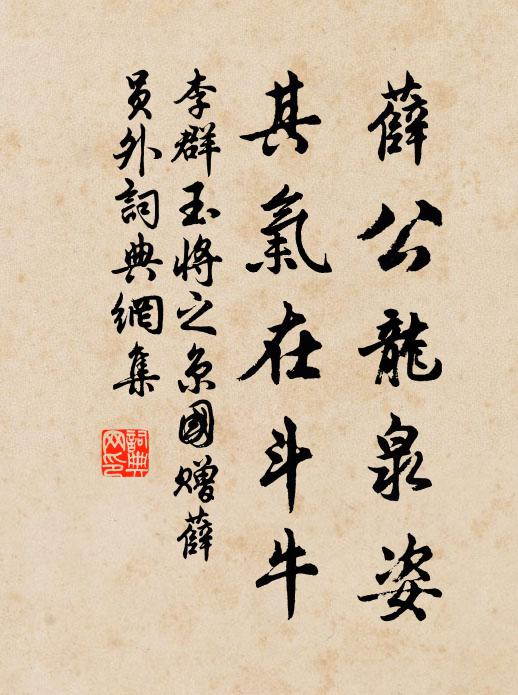 薛公龍泉姿
其氣在斗牛
李群玉將之京國贈薛
員外詞典網集
詞典
网印